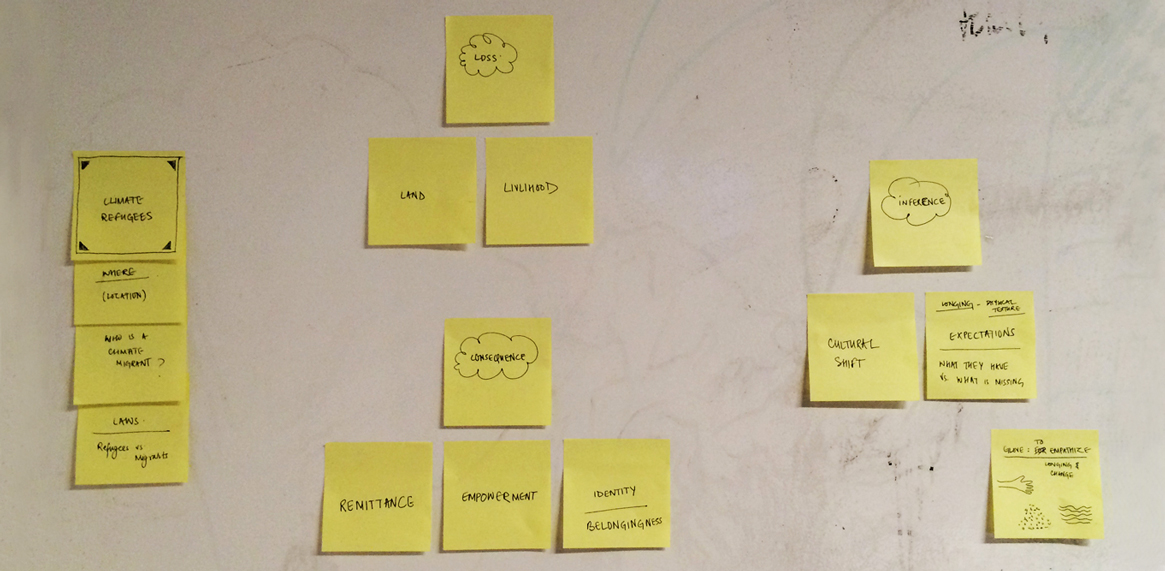 CLIMATE
REFUGEES
WHERE
(LOCATION)
WHO IS A
CLIMATE
MIGRANT ?
LAWS.
Refugees vs.
Migrants
LOSS.
LAND
LIVLIHOOD
CONSEQUENCE
REMITTANCE
EMPOWERMENT
IDENTITY
BELONGINGNESS
INFERENCE
CULTURAL
SHIFT
LONGING -
EXPECTATIONS
WHAT THEY HAVE
VS. WHAT IS MISSING
TO
GLOVE : EMPATHIZE
LONGING &
CHANGE